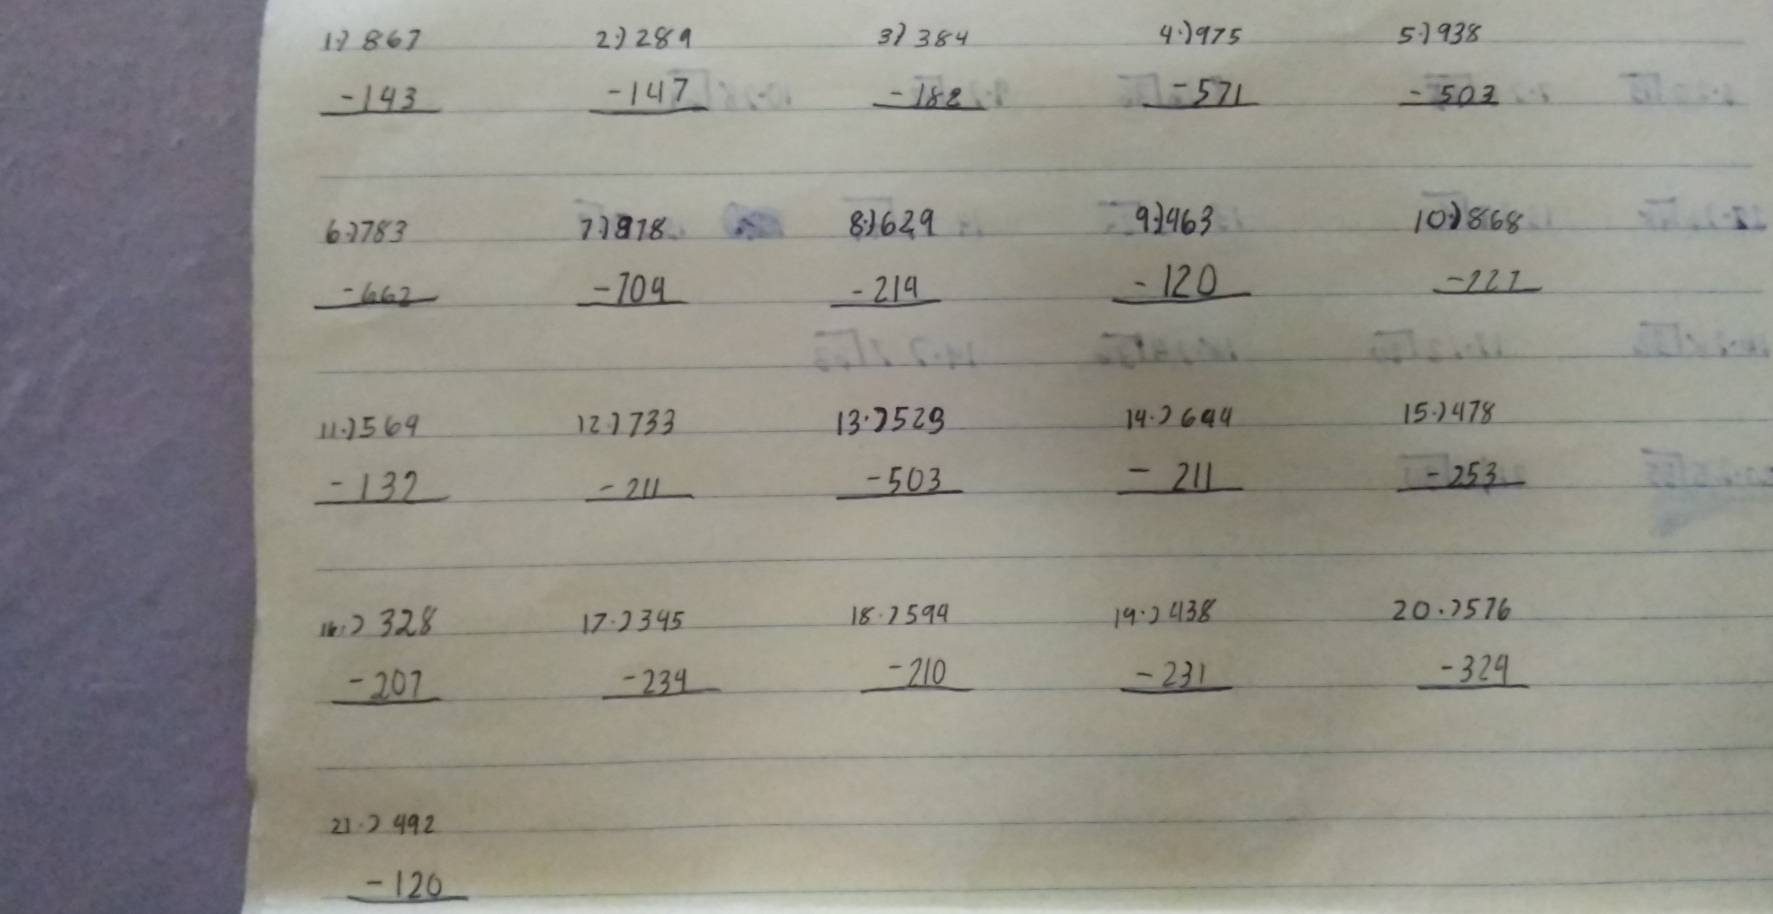 1.) 867 2.) 289 3.) 384 4.) 975 5.) 938
-143 -147 -182 -571 -503
6.) 783 7.) 978 8.) 629 9.) 463 10.) 868
-662 -709 -219 -120
11.) 569 12.) 733 13.) 529 14.) 694 15.) 478
-132 -211 -503 -211 -253
16.) 328 17.) 345 18.) 594 19.) 438 20.) 576
-207 -234 -210 -231 -324
21.) 492
-120